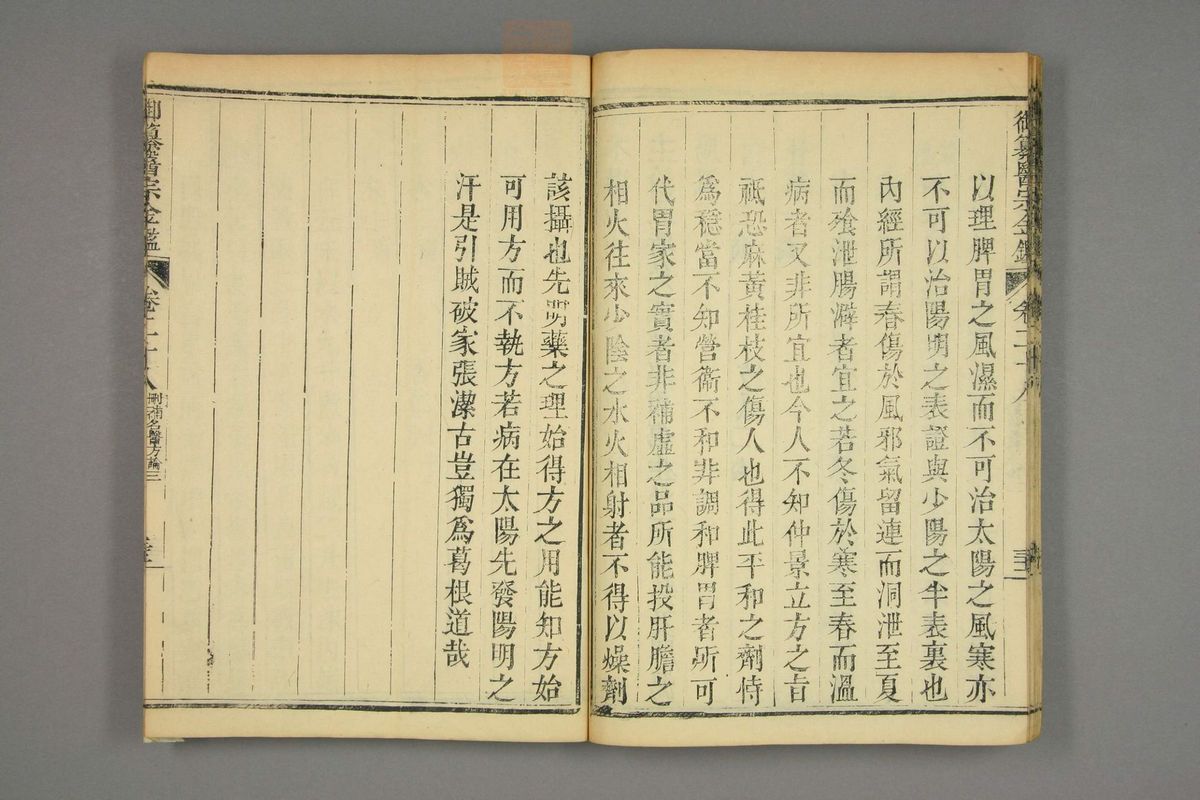 御纂醫宗金鑑
卷二十八
以理脾胃之風濕而不可治太陽之風寒亦
不可以治陽明之表證與少陽之半表裏也
內經所謂春傷於風邪氣留連而洞泄至夏
而飱泄腸澼者宜之若冬傷於寒至春而溫
病者又非所宜也今人不知仲景立方之旨
祗恐麻黃桂枝之傷人也得此平和之劑恃
爲穩當不知營衞不和非調和脾胃者所可
代胃家之實者非補虛之品所能投肝膽之
相火往來少陰之水火相射者不得以燥劑
該攝也先明藥之理始得方之用能知方始
可用方而不執方若病在太陽先發陽明之
汗是引賊破家張潔古豈獨爲葛根道哉
御纂醫宗金鑑
卷二十八
刪補名醫方論三